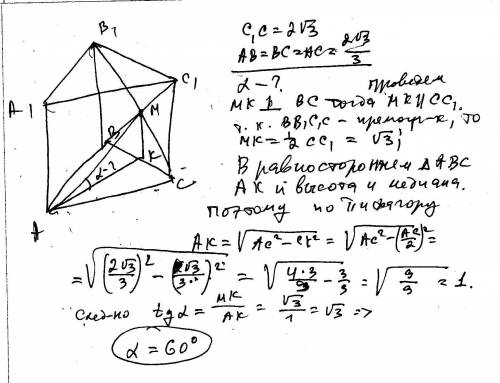 B₁
A-1
C₁
M
B
α-?
K
C
A
C₁C = 2√3
AB=BC=AC= 2√3/3
α-? проведем
MK ⊥ BC тогда MK || CC₁
т.к. BB₁C₁C - прямоуг-к, то
MK = ½ CC₁ = √3;
В равностороннем Δ ABC
AK и высота и медиана.
Поэтому по Пифагору
AK = √(AC² - CK²) = √(AC² - (AC/2)²) =
= √((2√3/3)² - (2√3/3·2)²) = √(4·3/9 - 3/9) = √(9/9) = 1.
След-но tg α = MK/AK = √3/1 = √3 =>
α = 60°